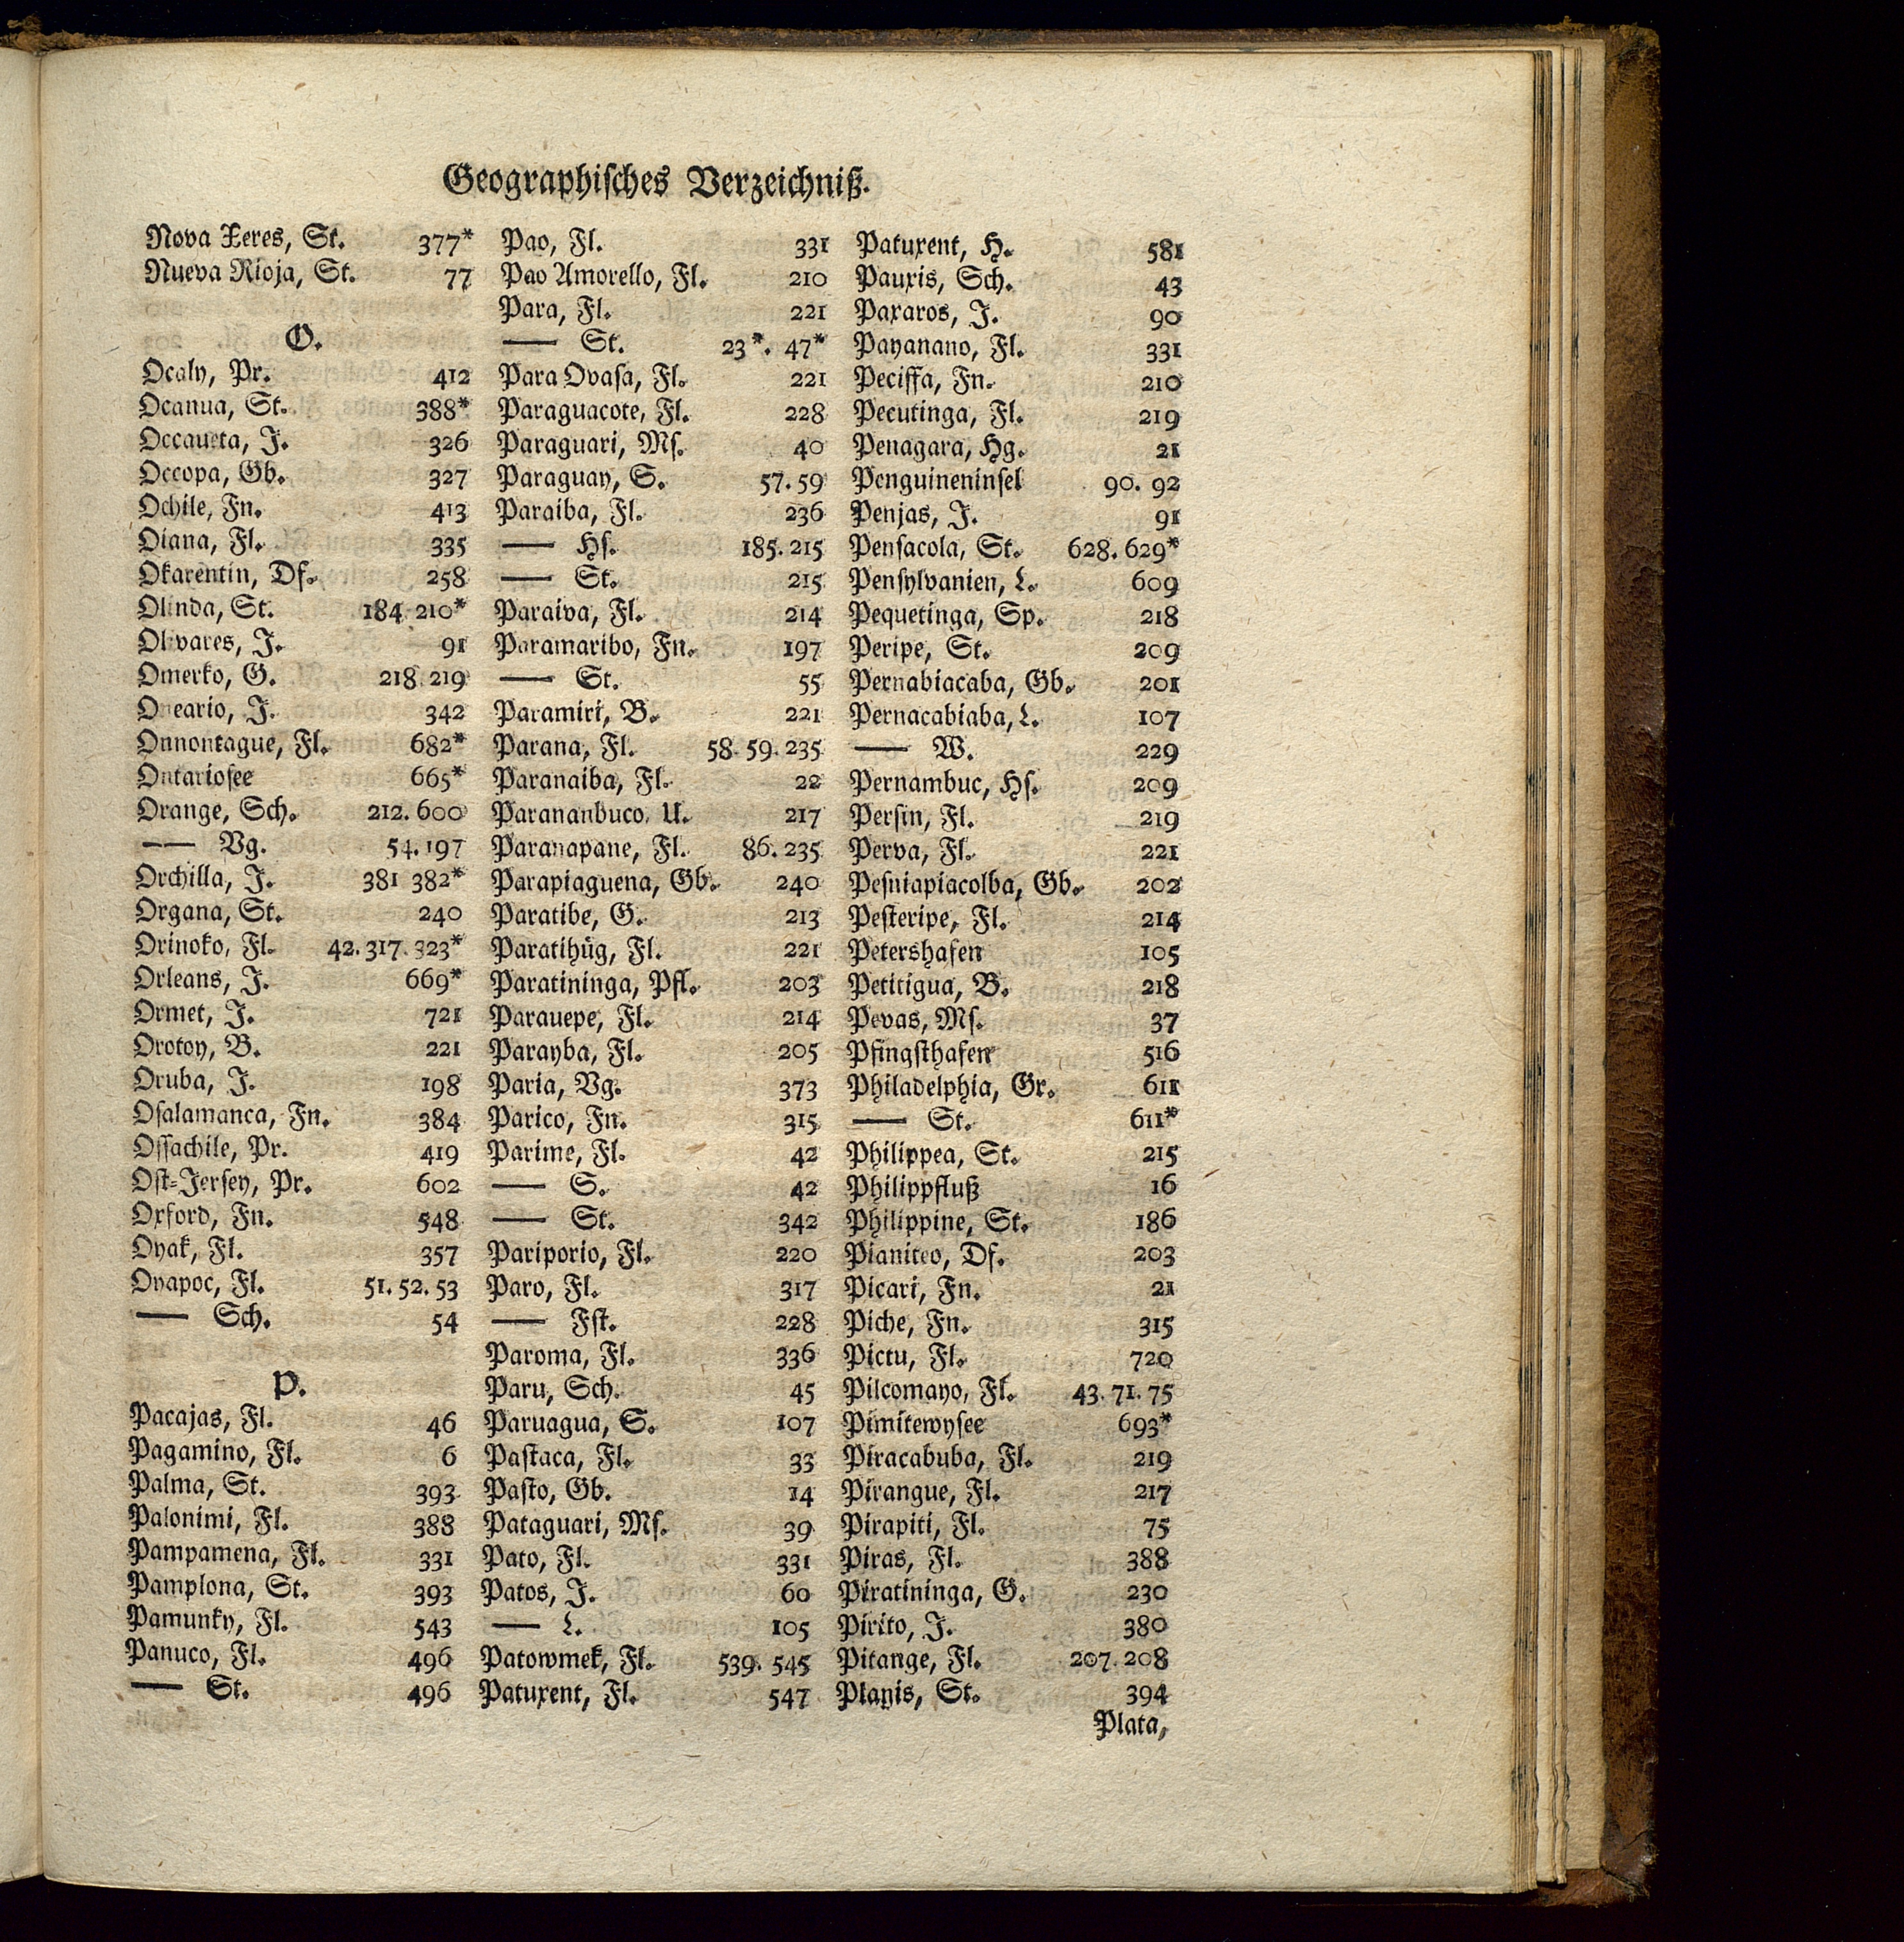 Geographisches Verzeichniß.
Nova Xeres, St. 377*
Nueva Rioja, St. 77
O.
Ocaly, Pr. 412
Ocanua, St. 388*
Occaueta, J. 326
Occopa, Gb. 327
Ochile, Fn. 413
Oiana, Fl. 335
Okarentin, Df. 258
Olinda, St. 184 210*
Olivares, J. 91
Omerko, G. 218.219
Oneario, J. 342
Onnontague, Fl. 682*
Ontariosee 665*
Orange, Sch. 212.600
—— Vg. 54.197
Orchilla, J. 381 382*
Organa, St. 240
Orinoko, Fl. 42.317.323*
Orleans, J. 669*
Ormet, J. 721
Orotoy, B. 221
Oruba, J. 198
Osalamanca, Fn. 384
Ossachile, Pr. 419
Ost-Jersey, Pr. 602
Oxford, Fn. 548
Oyak, Fl. 357
Oyapoc, Fl. 51.52.53
—— Sch. 54
P.
Pacajas, Fl. 46
Pagamino, Fl. 6
Palma, St. 393
Palonimi, Fl. 388
Pampamena, Fl. 331
Pamplona, St. 393
Pamunky, Fl. 543
Panuco, Fl. 496
—— St. 496
Pao, Fl. 331
Pao Amorello, Fl. 210
Para, Fl. 221
—— St. 23*. 47*
Para Ovasa, Fl. 221
Paraguacote, Fl. 228
Paraguari, Ms. 40
Paraguay, S. 57.59
Paraiba, Fl. 236
—— Hs. 185.215
—— St. 215
Paraiva, Fl. 214
Paramaribo, Fn. 197
—— St. 55
Paramiri, B. 221
Parana, Fl. 58.59.235
Paranaiba, Fl. 22
Parananbuco, U. 217
Paranapane, Fl. 86.235
Parapiaguena, Gb. 240
Paratibe, G. 213
Paratihüg, Fl. 221
Paratininga, Pfl. 203
Parauepe, Fl. 214
Parayba, Fl. 205
Paria, Vg. 373
Parico, Fn. 315
Parime, Fl. 42
—— S. 42
—— St. 342
Pariporio, Fl. 220
Paro, Fl. 317
—— Fst. 228
Paroma, Fl. 336
Paru, Sch. 45
Paruagua, S. 107
Pastaca, Fl. 33
Pasto, Gb. 14
Pataguari, Ms. 39
Pato, Fl. 331
Patos, J. 60
—— L. 105
Patowmek, Fl. 539. 545
Patuxent, Fl. 547
Patuxent, H. 581
Pauxis, Sch. 43
Paxaros, J. 90
Payanano, Fl. 331
Peciffa, Fn. 210
Pecutinga, Fl. 219
Penagara, Hg. 21
Penguineninsel 90. 92
Penjas, J. 91
Pensacola, St. 628.629*
Pensylvanien, L. 609
Pequetinga, Sp. 218
Peripe, St. 209
Pernabiacaba, Gb. 201
Pernacabiaba, L. 107
—— W. 229
Pernambuc, Hs. 209
Persin, Fl. 219
Perva, Fl. 221
Pesniapiacolba, Gb. 202
Pesteripe, Fl. 214
Petershafen 105
Petitigua, B. 218
Pevas, Ms. 37
Pfingsthafen 516
Philadelphia, Gr. 611
—— St. 611*
Philippea, St. 215
Philippfluß 16
Philippine, St. 186
Pianiteo, Df. 203
Picari, Fn. 21
Piche, Fn. 315
Pictu, Fl. 720
Pilcomayo, Fl. 43.71.75
Pimitewysee 693*
Piracabuba, Fl. 219
Pirangue, Fl. 217
Pirapiti, Fl. 75
Piras, Fl. 388
Piratininga, G. 230
Pirito, J. 380
Pitange, Fl. 207.208
Playis, St. 394
Plata,